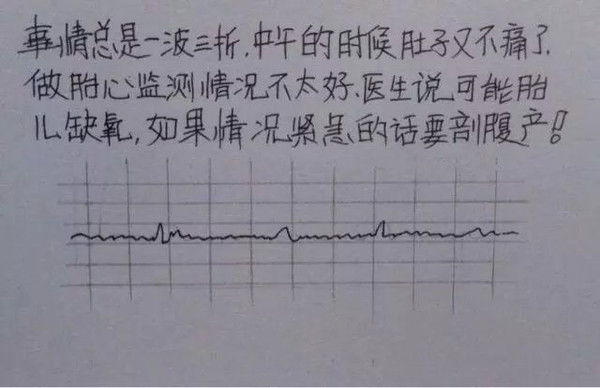 事情总是一波三折.中午的时候肚子又不痛了.
做胎心监测情况不太好.医生说可能胎
儿缺氧,如果情况紧急的话要剖腹产!